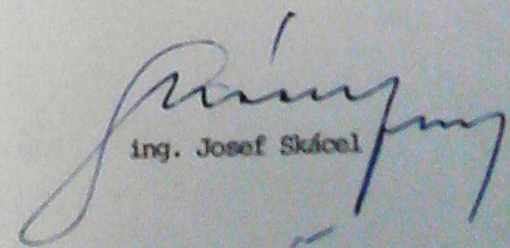 ing. Josef Skácel